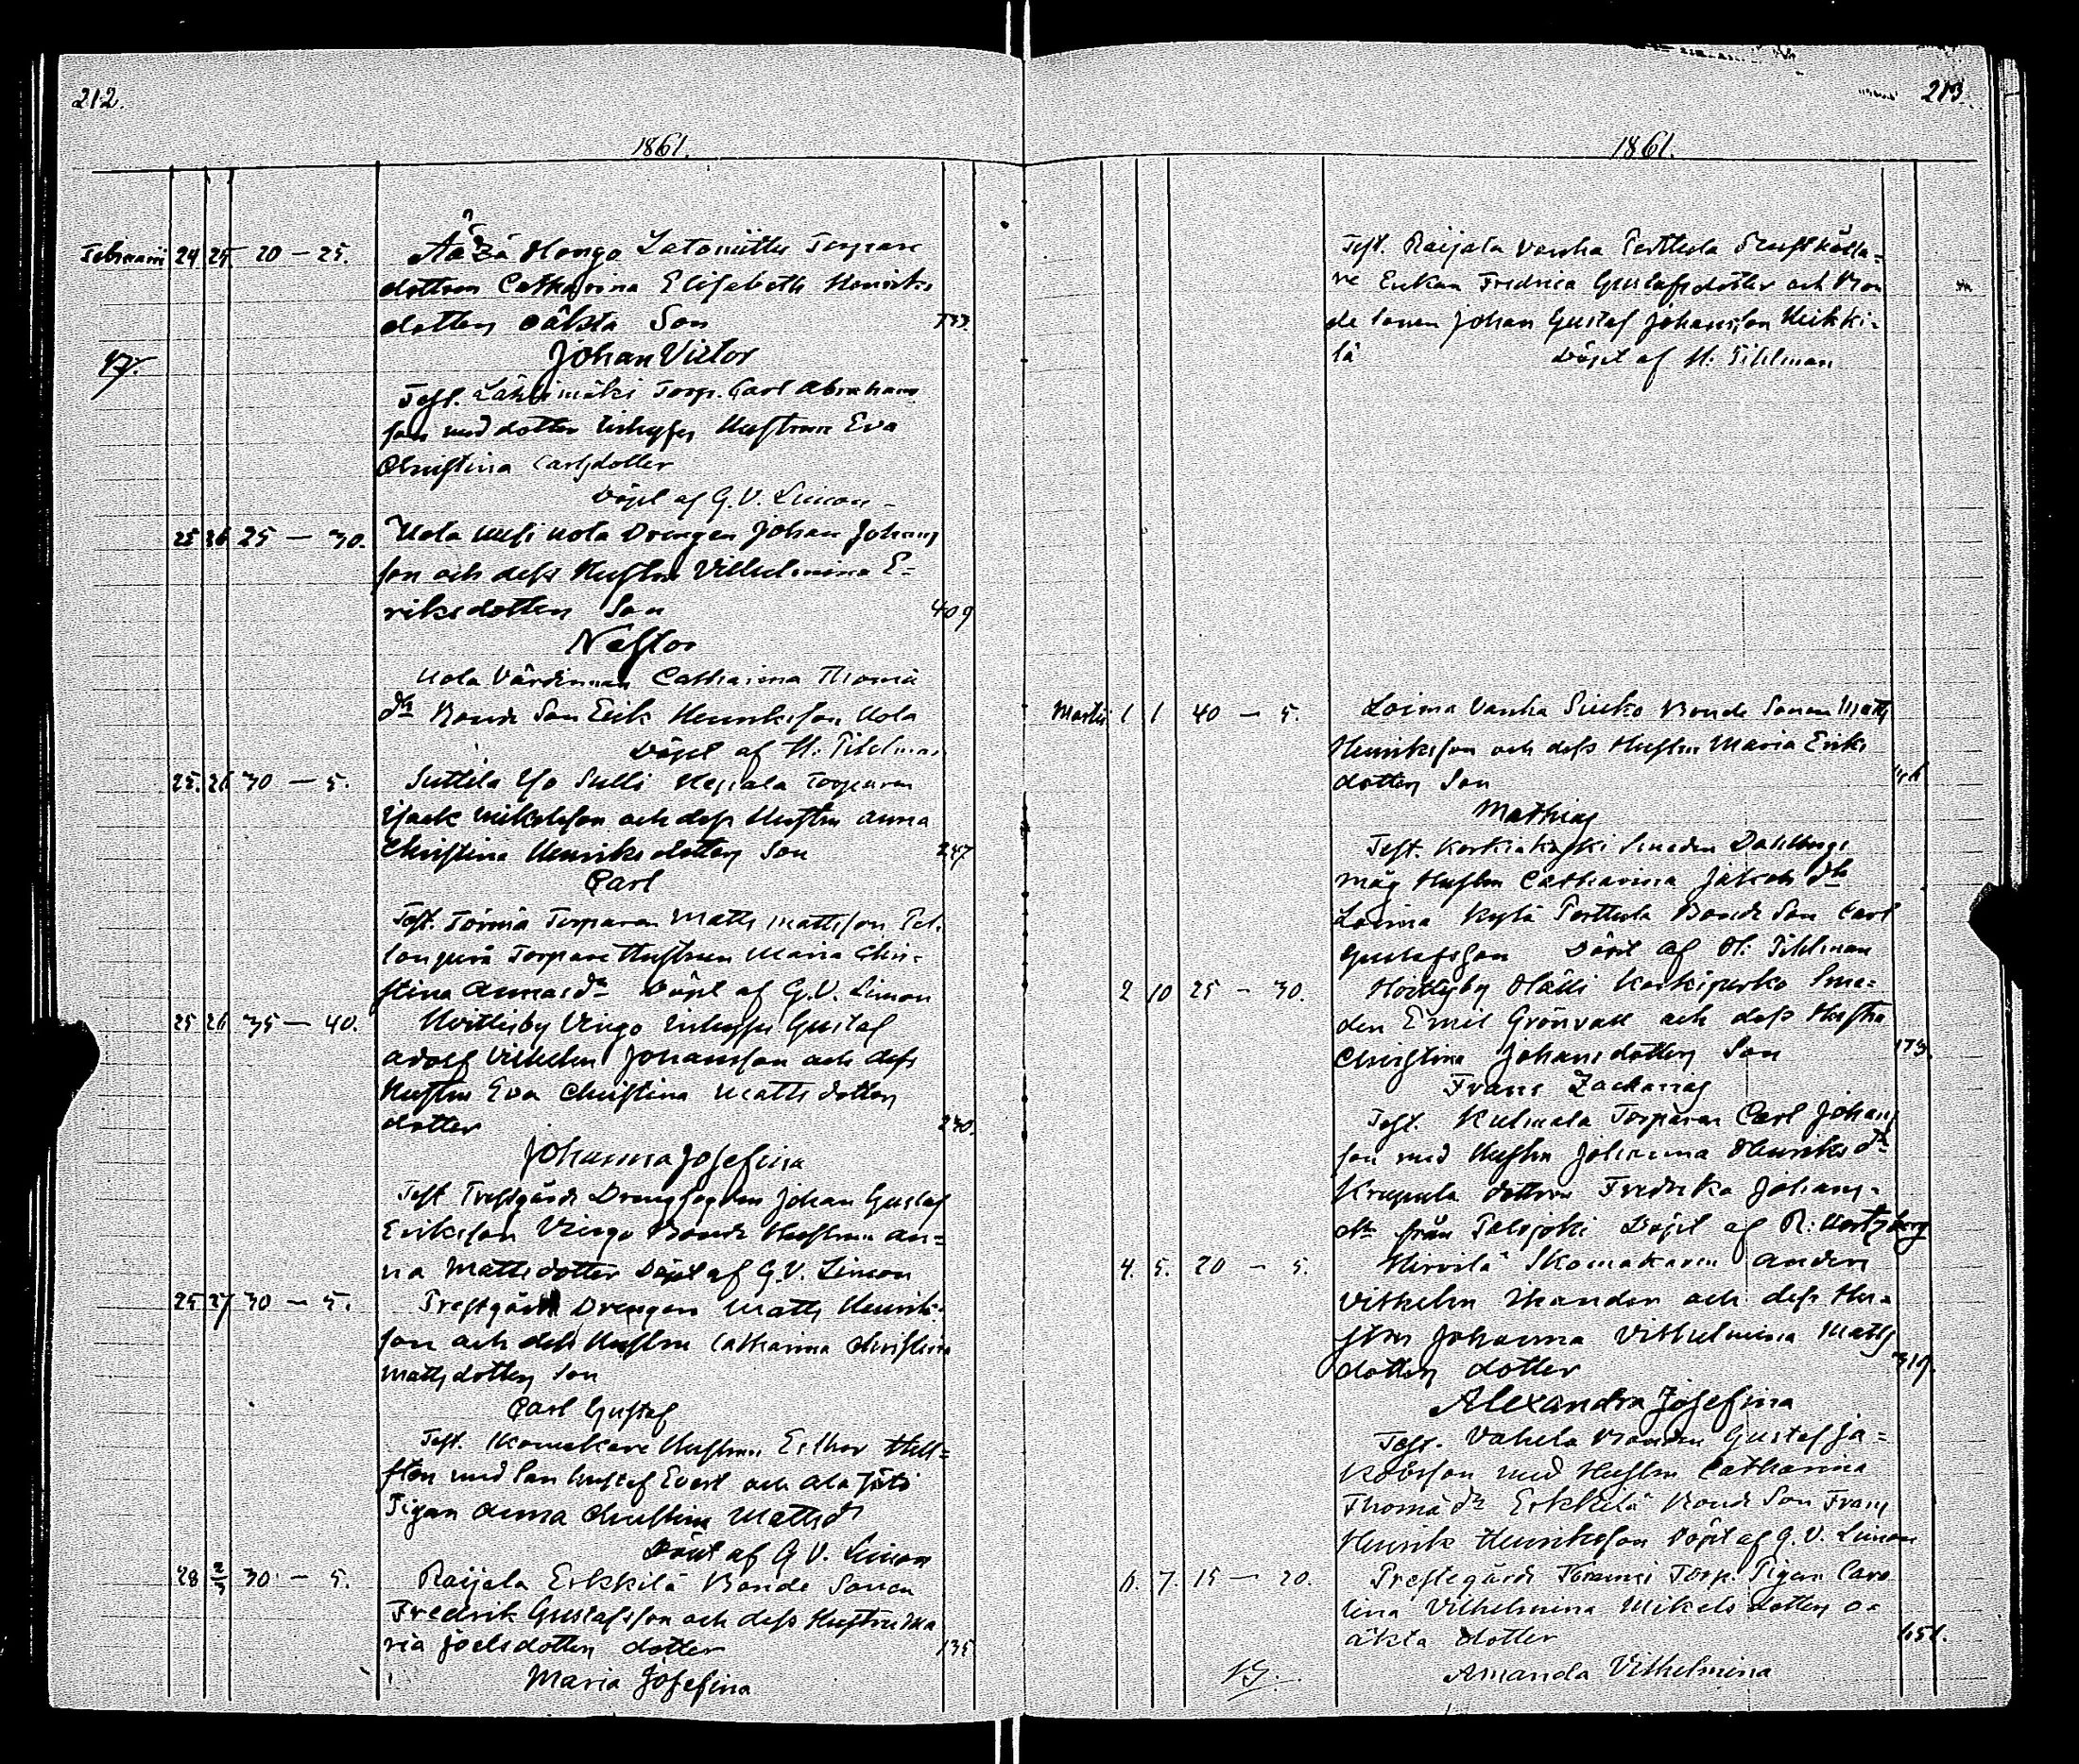 212.
1861.
Februarii 24 25. 20 — 25. Hongo Latoniittu Torpare
dottren Catharina Elisabeth Henriks
dotters oäkta Son 133.
Johan Victor
Test. Lähdimäki Torp. Carl Abrahams
son med dotter Inhyses Hustrun Eva
Christina Carlsdotter
Döpt af G. V. Limon
25 26 25 — 30. Uola Uusi Uola Drengen Johan Johans
son och dess Hustru Vilhelmina E=
riksdotters Son 409
Nestor
Uola Värdinnan Catharina Thomä
dr Bonde Son Erik Henriksson Uola
Döpt af H: Pihlman
25. 26 30 — 5. Suttila Yso Sulli Heppala Torparen
Isack Mikelsson och dess Hustru Anna
Christina Henriksdotters Son 247
Carl
Test. Törmä Torparen Matts Mattsson Pel
Torpare Hustrun Maria Chri=
stina Annasdr Döpt af G. V. Limon
25 26 35 — 40. Vingo Inhyses Gustaf
Adolf Vilhelm Johansson och dess
Hustru Eva Christina Mattsdotters
dotter 230.
Johanna Josefina
Test Prestgårds Drengfogden Johan Gustaf
Eriksson Vingo Bonde Hustrun An=
na Mattsdotter Döpt af G. V. Limon
25 27 30 — 5. Prestgårds Drengen Matts Henriks
son och dess Hustru Catharina Christina
Mattsdotters Son
Carl Gustaf
Test. Skomakare Hustrun Esther Hell=
sten med Son Gustaf Evert och Ala
Pigan Anna Christina Mattsdr
Döpt af G V. Limon
28 2/3 30 — 5. Raijala Erkkilä Bonde Sonen
Fredrik Gustafsson och dess Hustru Ma
ria Joelsdotters dotter 135
Maria Josefina
213.
1861.
Test. Raijala Vanha Perttula
re Enkan Fredrica Gustafsdotter och Bon
de Sonen Johan Gustaf Johansson Heikki=
lä Döpt af H: Pihlman
Martii 1 1 40 — 5. Loima Vanha Sucko Bonde Sonen Matts
Henriksson och dess Hustru Maria Eriks
dotters Son
Mathias
Test. Korkiakoski Smeden Dahlbergs
måg Hustru Catharina Jakobs dr
Loima Kylä Perttula Bonde Son Carl
Gustafsson Döpt af H: Pihlman
2 10 25 — 30. Hälli Koskiperko Sme=
den Emil Grönvall och dess Hustru
Christina Johansdotters Son 173.
Frans Zacharias
Test. Kulmala Torparen Carl Johans
son med Hustru Johanna Henriks dr
Krapula dottren Fredrika Johans=
dr från Palojoki Döpt af R: Hertzberg
4. 5. 20 — 5. Hirvilä Skomakaren Anders
Vilhelm Skander och dess Hu=
stru Johanna Vilhelmina Matts
dotters dotter 319.
Alexandra Josefina
Test. Vahela Bonden Gustaf Ja=
kobsson med Hustru Catharina
Thomä dr Erkkilä Bonde Son Frans
Henrik Henriksson Döpt af G. V. Limon
6. 7. 15 — 20. Prestegårds Torp. Pigan Caro
lina Vilhelmina Mikelsdotters o=
äkta dotter 651.
Amanda Vilhelmina